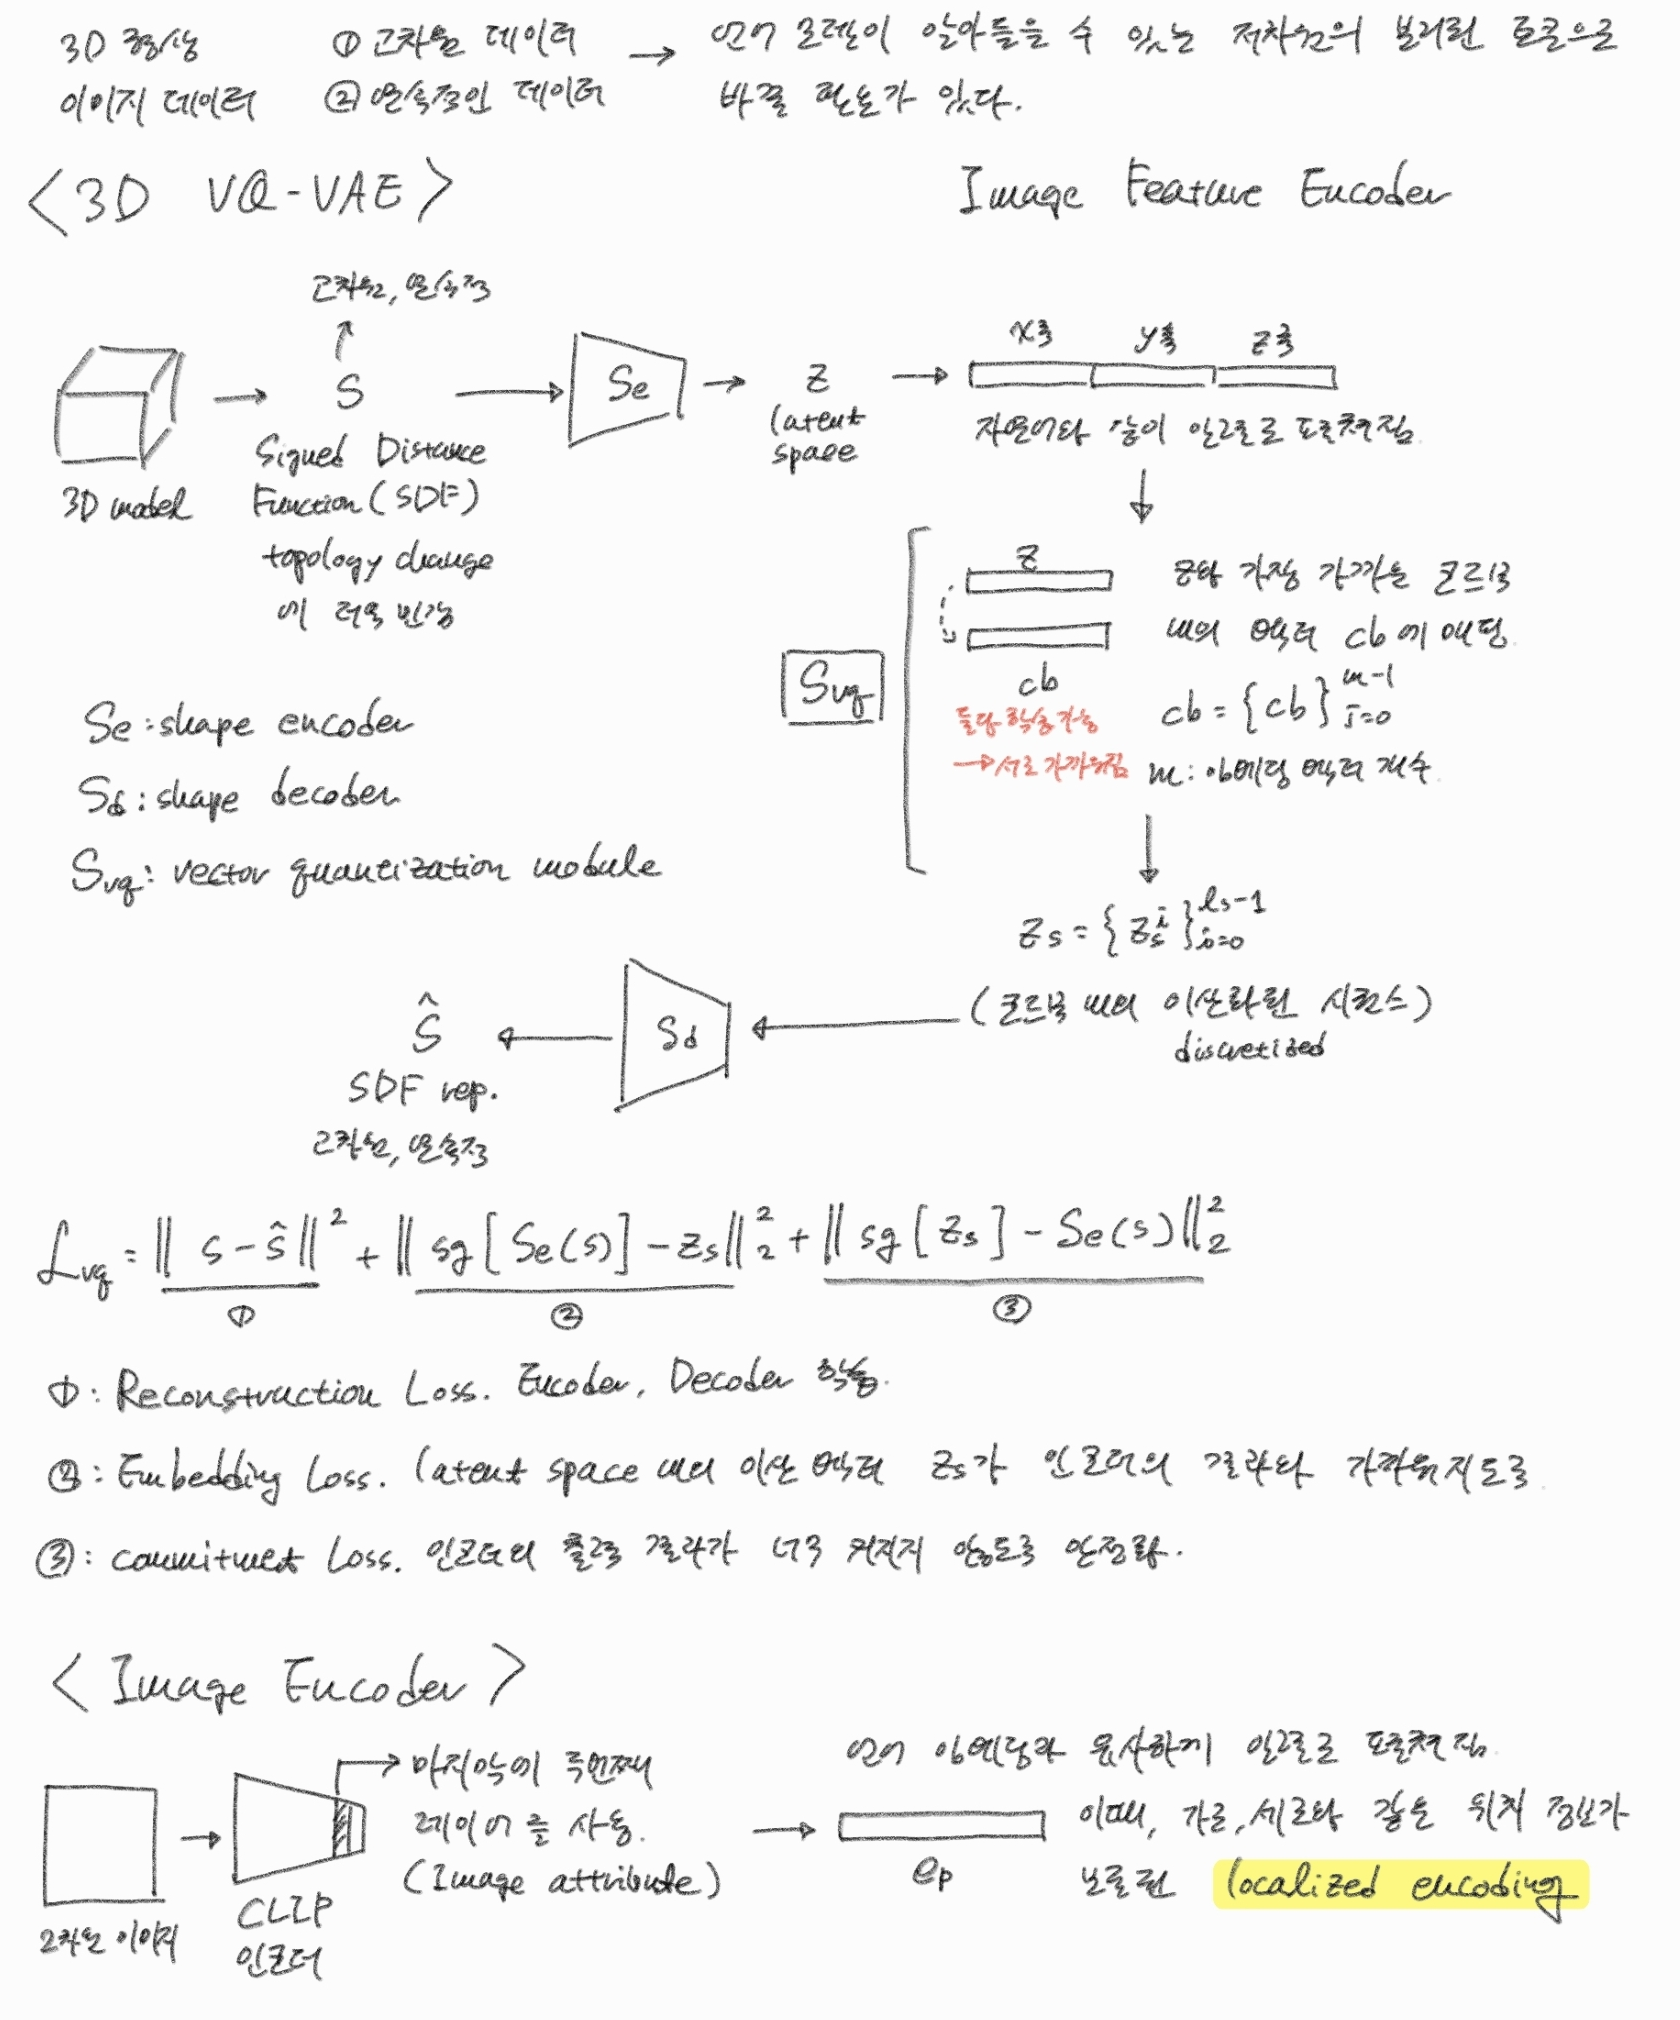 3D 형상 ① 고차원 데이터 → 언어 모델이 알아들을 수 있는 저차원의 분리된 토큰으로
이미지 데이터 ② 연속적인 데이터 바꿀 필요가 있다.
<3D VQ-VAE> Image Feature Encoder
고차원, 연속적
↑
3D model → S → Se → z → x축 y축 z축
Signed Distance
Function (SDF)
topology change
에 더욱 민감
latent
space
자연어와 같이 일렬로 표현됨.
Svq
z
cb
z와 가장 가까운 코드북
내의 벡터 cb에 매핑.
cb = {cb}
m-1
i=0
둘다 학습 가능
→ 서로 가까워짐
m: 임베딩 벡터 개수.
Se : shape encoder
Sd : shape decoder
Svq : vector quantization module
zs = {zsⁱ}
ls-1
i=0
(코드북 내의 이산화된 시퀀스)
discretized
Sd
ŝ
SDF rep.
고차원, 연속적
Lvq = ‖s - ŝ‖² + ‖sg[Se(s)] - zs‖²₂ + ‖sg[zs] - Se(s)‖²₂
① ② ③
①: Reconstruction Loss. Encoder, Decoder 학습.
②: Embedding Loss. latent space 내의 이산 벡터 zs가 인코더의 결과와 가까워지도록.
③: commitmet Loss. 인코더의 출력 결과가 너무 커지지 않도록 안정화.
<Image Encoder>
2차원 이미지
CLIP
인코더
마지막에 두번째
레이어를 사용.
(Image attribute)
ep
언어 임베딩과 유사하게 일렬로 표현됨.
이때, 가로, 세로와 같은 위치 정보가
보존된 localized encoding